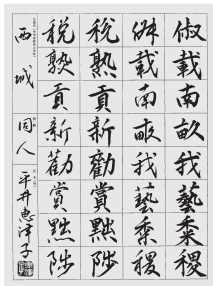 俶載南畝我藝黍稷
俶載南畝我藝黍稷
税熟貢新勸賞黜陟
税熟貢新勸賞黜陟
西城 同人 平井惠津子